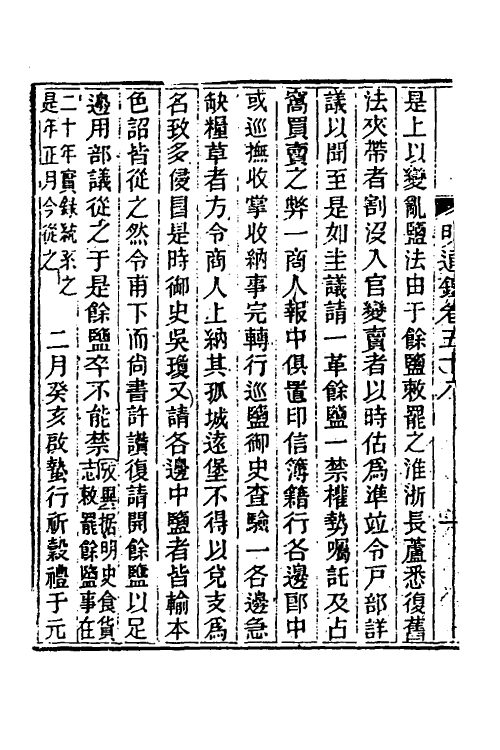 明通鑑卷五十八
是上以變亂鹽法由于餘鹽敕罷之淮浙長蘆悉復舊
法夾帶者割沒入官變賣者以時估爲準竝令戸部詳
議以聞至是如圭議請一革餘鹽一禁權勢囑託及占
窩買賣之弊一商人報中俱置印信簿籍行各邊郎中
或巡撫收掌收納事完轉行巡鹽御史查驗一各邊急
缺糧草者方令商人上納其孤城遠堡不得以兌支爲
名致多侵冒是時御史吳瓊又請各邊中鹽者皆輸本
色詔皆從之然令甫下而尚書許讚復請開餘鹽以足
邊用部議從之于是餘鹽卒不能禁攷異據明史食貨志敕罷餘鹽事在
二十年實錄統系之是年正月今從之 二月癸亥啟蟄行祈穀禮于元